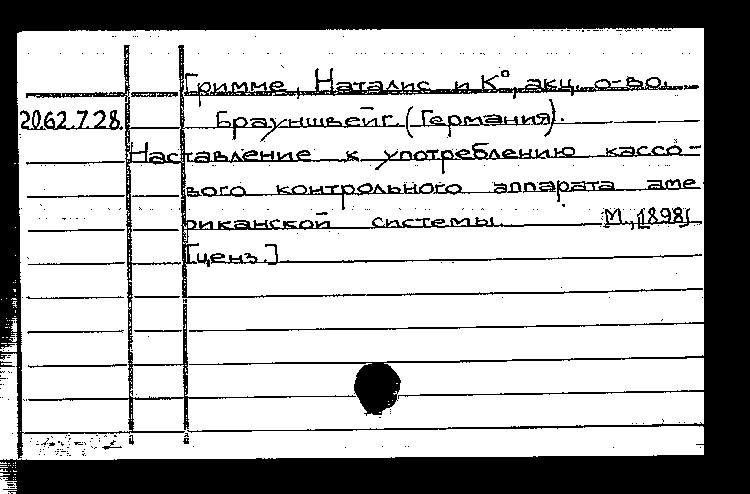 Гримме, Наталис и К°, акц. о-во.
20.62.7.28. Брауншвейг. (Германия).
Наставление к употреблению кассо-
вого контрольного аппарата аме
риканской системы. М., [1898]
[ценз.]